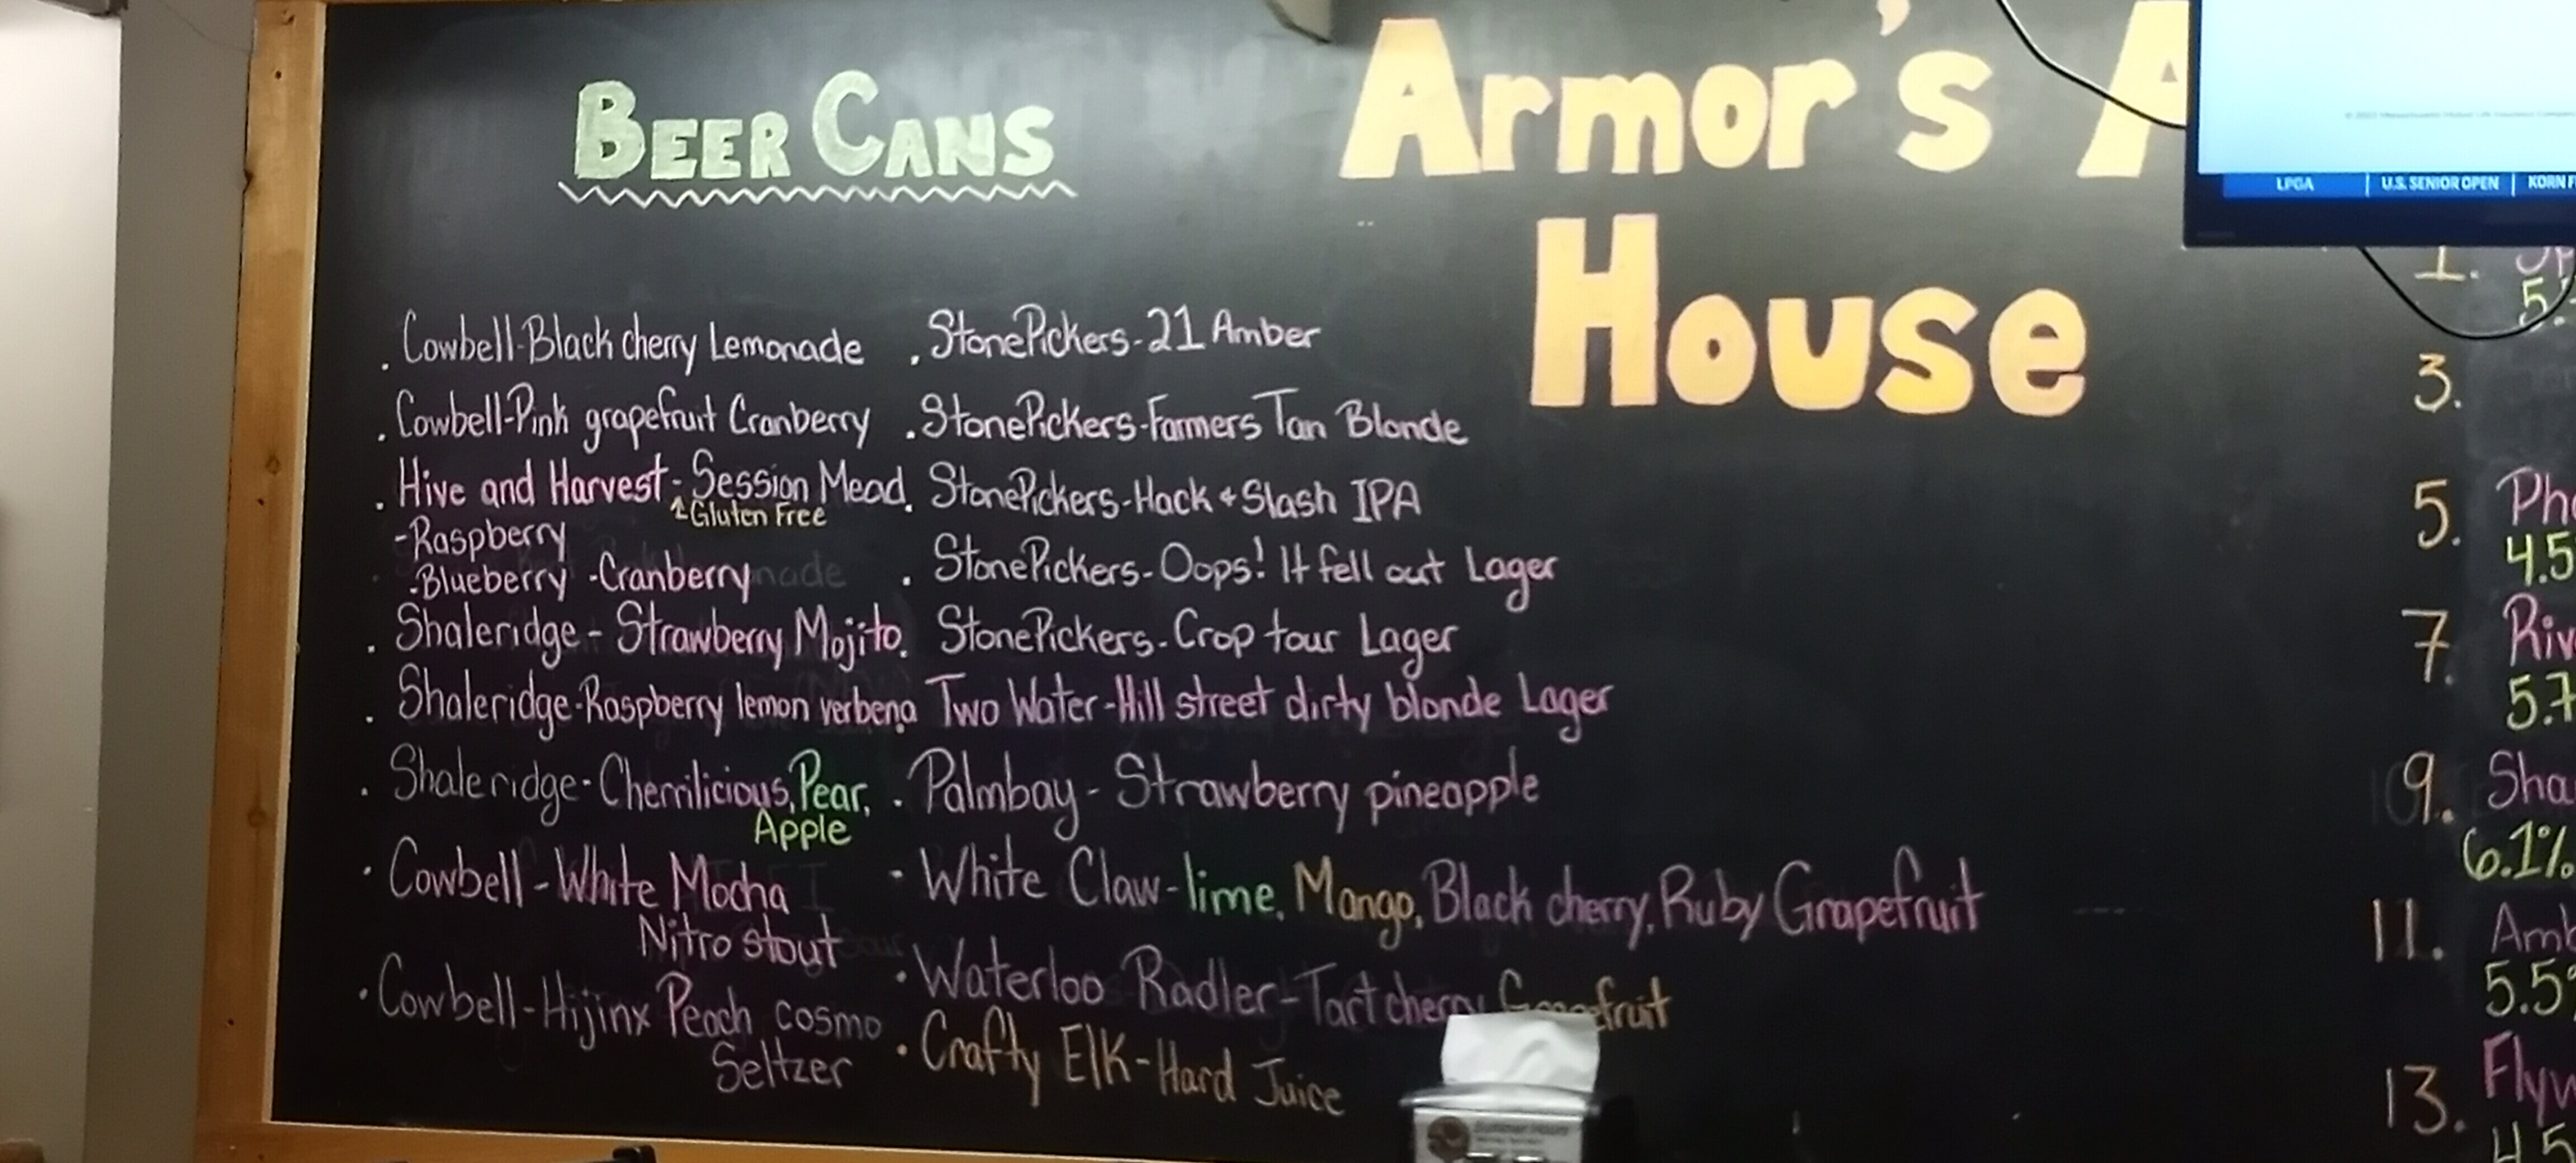 BEER CANS
. Cowbell-Black cherry Lemonade
. Cowbell-Pink grapefruit Cranberry
. Hive and Harvest - Session Mead
Gluten Free
-Raspberry
-Blueberry -Cranberry
. Shaleridge - Strawberry Mojito
. Shaleridge-Raspberry lemon verbena
. Shaleridge-Cherrilicious, Pear,
Apple
· Cowbell-White Mocha
Nitro stout
· Cowbell-Hijinx Peach cosmo
Seltzer
. StonePickers-21 Amber
. StonePickers-Farmers Tan Blonde
. StonePickers-Hack + Slash IPA
. StonePickers-Oops! It fell out Lager
. StonePickers-Crop tour Lager
. Two Water-Hill street dirty blonde Lager
. Palmbay - Strawberry pineapple
- White Claw-lime, Mango, Black cherry, Ruby Grapefruit
· Waterloo Radler-Tart cherry
· Crafty Elk-Hard Juice
Armor's
House
LPGA
U.S. SENIOR OPEN
1.
3.
5.
4.5
7.
5.7
9.
6.1%
11.
5.5%
13.
4.5